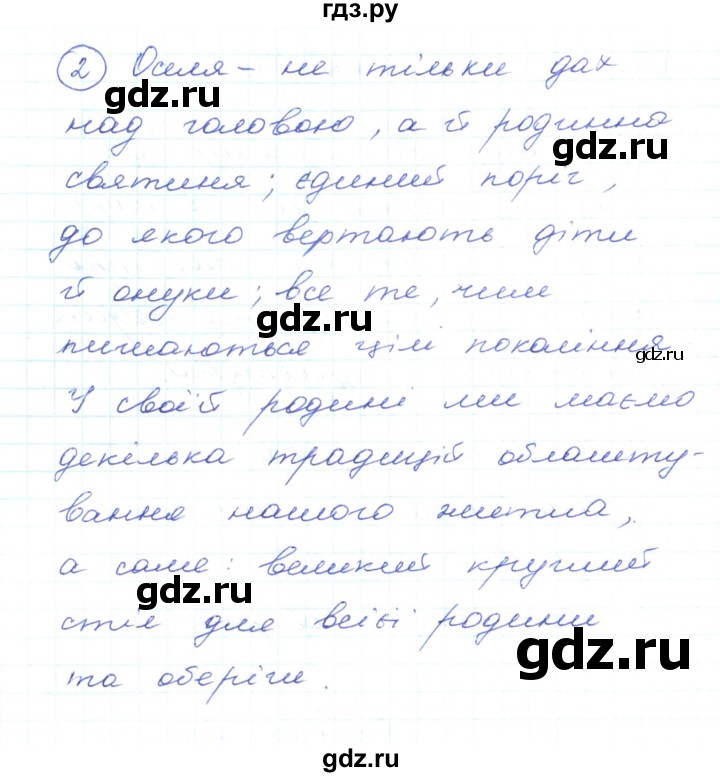 гдз.ру
2 Оселя – не тільки дах
gdz.ru
над головою, а й родинна
gdz.ru
святиня; єдиний поріг,
до якого вертають діти
й онуки; все те, чим
gdz.ru
пишаються цілі покоління.
gdz.ru
У своїй родині ми маємо
декілька традицій облашту-
вання нашого житла,
а саме: великий круглий
gdz.ru
стіл для всієї родини
gdz.ru
та обереги.
gdz.ru